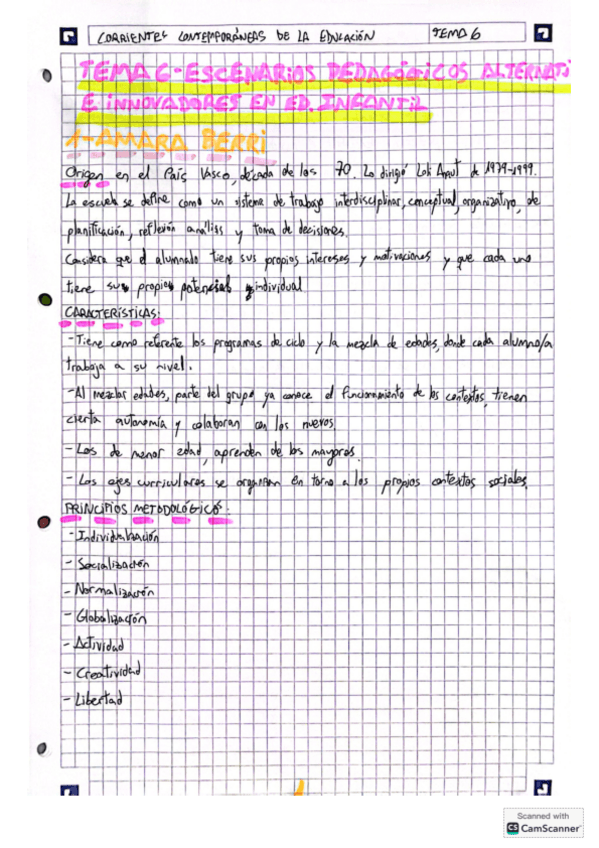 CORRIENTES CONTEMPORÁNEAS DE LA EDUCACIÓN
TEMA 6
TEMA 6-ESCENARIOS PEDAGÓGICOS ALTERNATI
E INNOVADORES EN ED. INFANTIL
1-AMARA BERRI
Origen en el País Vasco, década de los 70. Lo dirigió Loli Anaut de 1979-1999.
La escuela se define como un sistema de trabajo interdisciplinar, conceptual, organizativo, de
planificación, reflexión análisis y toma de decisiones.
Considera que el alumnado tiene sus propios intereses y motivaciones y que cada uno
tiene su propio potencial individual
CARACTERÍSTICAS:
-Tiene como referente los programas de ciclo y la mezcla de edades, donde cada alumno/a
trabaja a su nivel.
-Al mezclar edades, parte del grupo ya conoce el funcionamiento de los contextos, tienen
cierta autonomía y colaboran con los nuevos.
- Los de menor edad, aprenden de los mayores.
- Los ejes curriculares se organizan en torno a los propios contextos sociales.
PRINCIPIOS METODOLÓGICOS:
-Individualización
- Socialización
- Normalización
- Globalización
- Actividad
- Creatividad
- Libertad
1
Scanned with
CS CamScanner